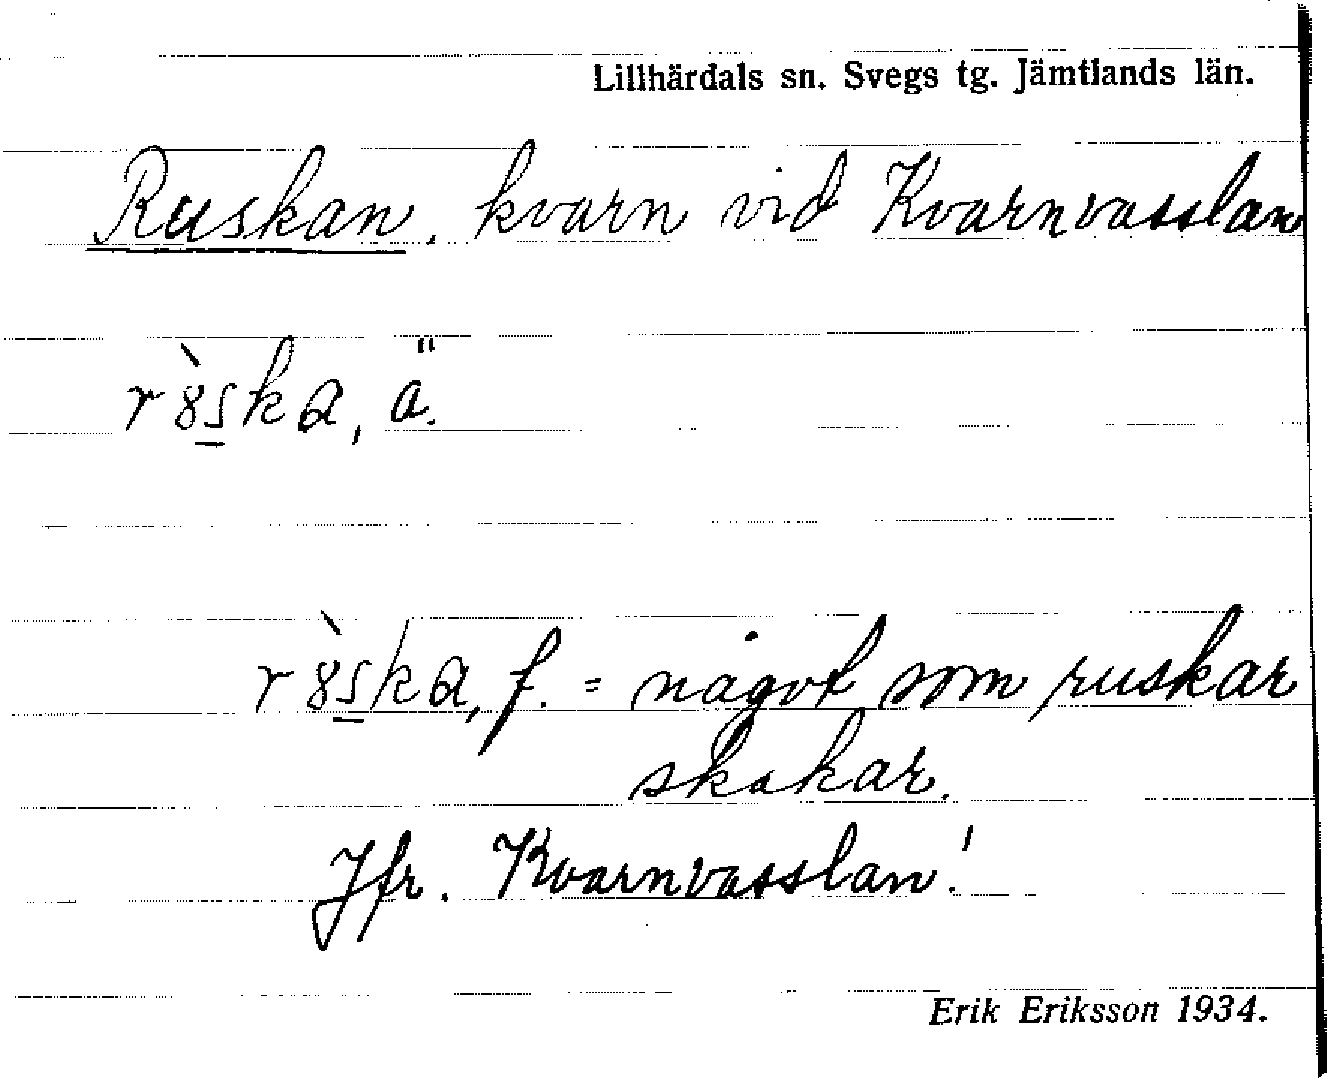 Lillhärdals sn. Svegs tg. Jämtlands län.
Ruskan. kvarn vid Kvarnvasslan
rȣ̀ska, ä.
rȣ̀ska, f. = något som ruskar
skakar.
Jfr. Kvarnvasslan!
Erik Eriksson 1934.